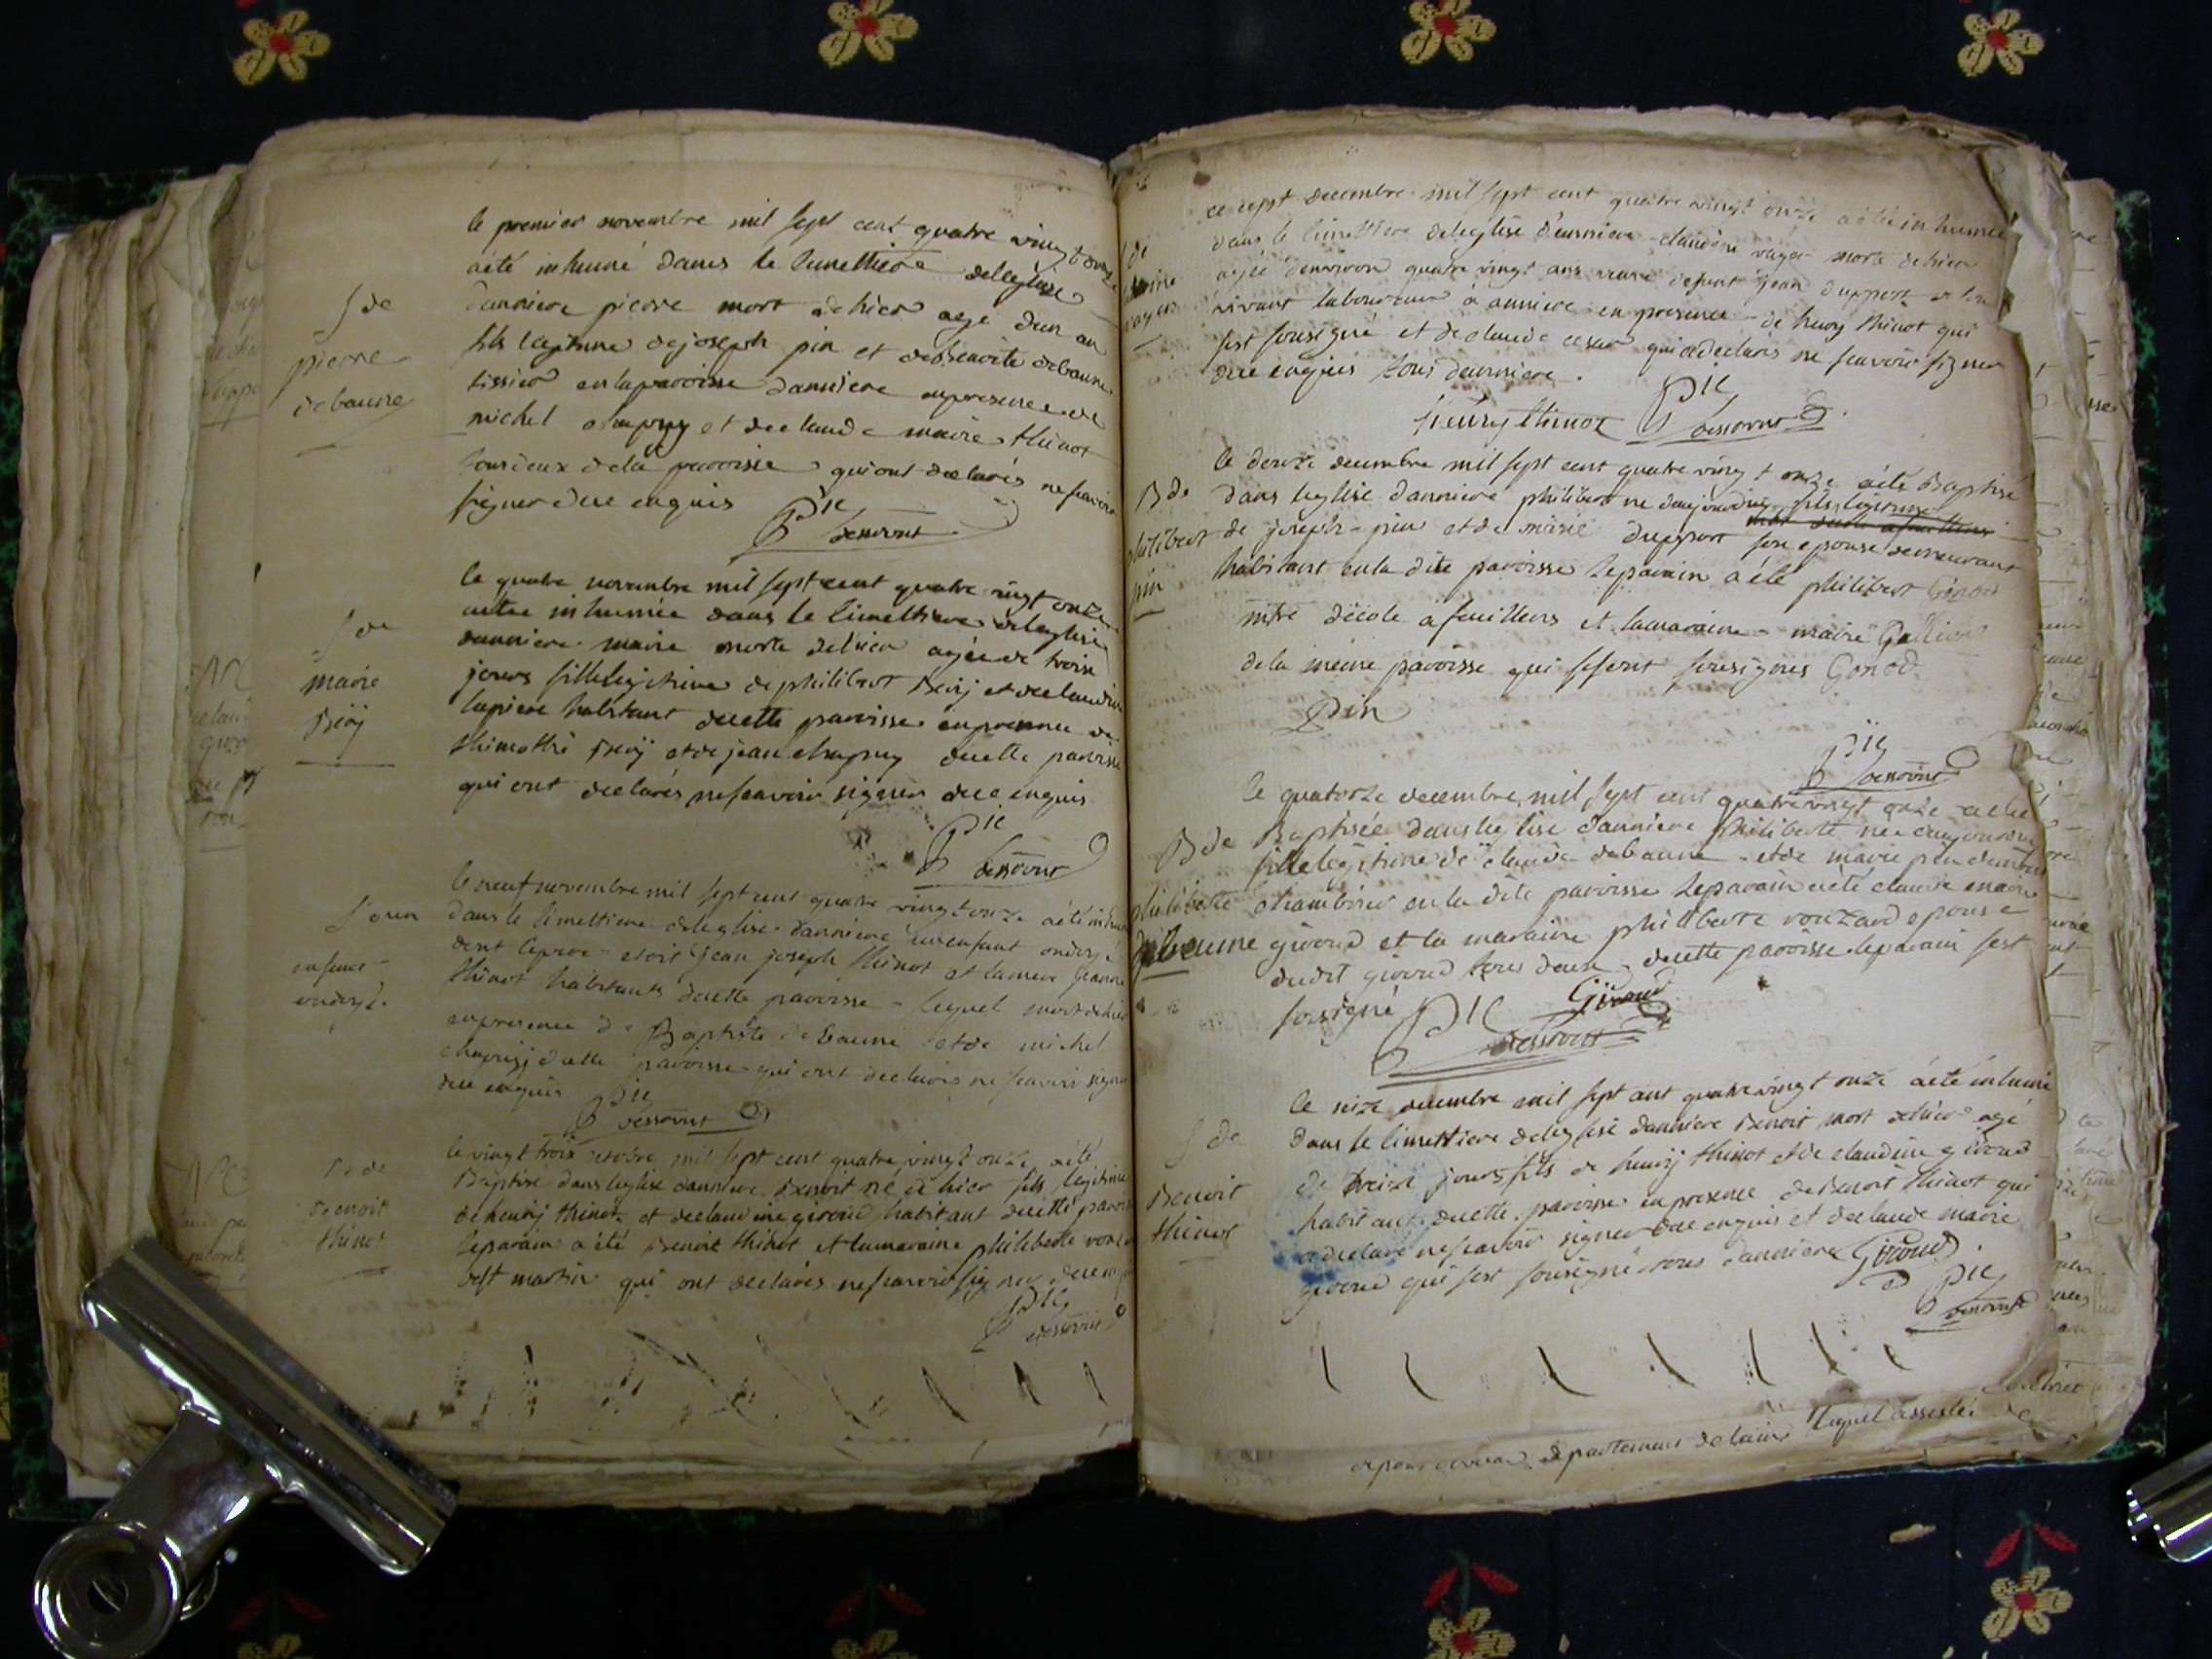 le premier novembre mil sept cent quatre vingt onze
a été inhumé dans le cimettiere de leglise
S de
danniere pierre mort de hier agé dun an
pierre
fils legitime de joseph pin et de benoite debaune
debaune
tissier en la paroisse danniere en presence de
michel chapuy et de claude marie thinot
tous deux de la paroisse qui ont declarés ne scavoir
signer de ce enquis
Pic
desservt
le quatre novembre mil sept cent quatre vingt onze
a etee inhumée dans le cimettiere de leglise
S de
danniere marie morte de hier agée de trois
marie
jours fille legitime de philibert
et de claudine
lapiere habitant de cette paroisse en presence de
thimothé
et de jean chapuy de cette paroisse
qui ont declarés ne scavoir signer de ce enquis
Pic
desservt
le neuf novembre mil sept cent quatre vingt onze a été inhumé
S dun
dans le cimettiere de leglise danniere un enfant ondoyé
dont le pere etoit jean joseph thinot et la mere jeanne
enfance
thinot habitants de cette paroisse lequel mort de hier
ondoyé
en presence de Baptiste debaune et de michel
chapuy de cette paroisse qui ont declarés ne scavoir signer
de ce enquis
Pic
desservt
le vingt trois octobre mil sept cent quatre vingt onze a été
B de
Baptisé dans leglise danniere Benoit né de hier fils legitime
benoit
de henry thinot et de claudine giroud habitant de cette paroisse
thinot
le parain a été Benoit thinot et la maraine philiberte
martin qui ont declarés ne scavoir signer de ce enquis
Pic
desservt
ce sept decembre mil sept cent quatre vingt onze a été inhumée
S de
dans le cimettiere de leglise danniere claudine morte de hier
agée denviron quatre vingt ans veuve defunt jean dupport de son
vivant laboureur à anniere en presence de henry thinot qui
sest sousigné et de claude qui a declaré ne scavoir signer
de ce enquis tous danniere.
henry thinot Pic
desservt
le douze decembre mil sept cent quatre vingt onze a été Baptisé
B de
dans leglise danniere philibert ne daujourdhuy fils legitime
philibert
de joseph pin et de marie dupport son epouse demeurant
pin
habitant en la dite paroisse le parain a été philibert Gonod
mtre décole a feuillens et la maraine marie
de la meme paroisse qui se sont sousignés Gonod
Pin
Pic
desservt
le quatorze decembre mil sept cent quatre vingt onze a été
B de
Baptisée dans leglise danniere philiberte née daujourdhuy
fille legitime de claude debaune et de marie pin
philiberte
en la dite paroisse le parain a été claude marie
debaune
giroud et la maraine philiberte vouzard epouse
du dit giroud tous deux de cette paroisse le parain sest
sousigné
Pic Giroud
desservt
le seize decembre mil sept cent quatre vingt onze a été inhumé
S de
dans le cimettiere de leglise danniere Benoit mort de hier agé
de treize jours fils de henry thinot et de claudine giroud
Benoit
habitant de cette paroisse en presence de Benoit thinot qui
thinot
a declaré ne scavoir signer de ce enquis et de claude marie
giroud qui sest sousigné tous danniere Giroud.
Pic
desservt
departement de lain lequel assisté de